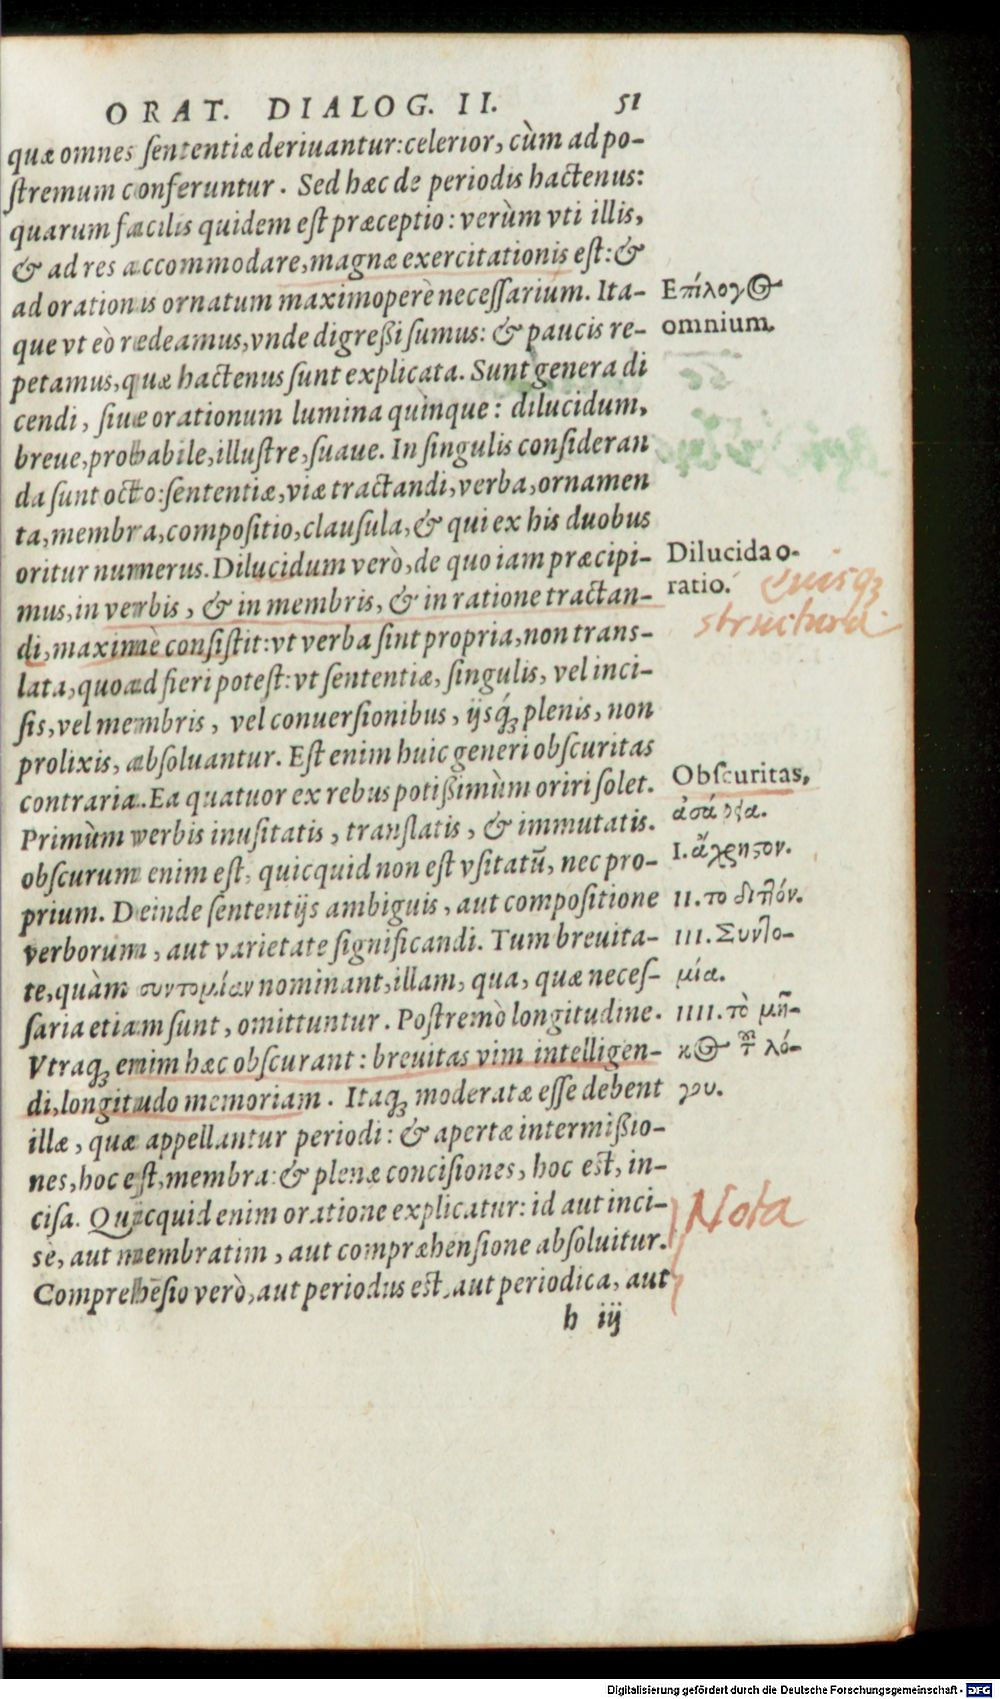 ORAT. DIALOG. II. 51
quæ omnes sententiæ deriuantur: celerior, cùm ad po-
stremum conferuntur. Sed hæc de periodis hactenus:
quarum facilis quidem est præceptio: verùm vti illis,
& ad res accommodare, magnæ exercitationis est: &
ad orationis ornatum maximoperè necessarium. Ita-
Επίλογος
omnium.
que vt eò redeamus, vnde digreßi sumus: & paucis re-
petamus, quæ hactenus sunt explicata. Sunt genera di
cendi, siue orationum lumina quinque: dilucidum,
breue, probabile, illustre, suaue. In singulis consideran
da sunt octo: sententiæ, viæ tractandi, verba, ornamen
ta, membra, compositio, clausula, & qui ex his duobus
oritur numerus. Dilucidum verò, de quo iam præcipi-
Dilucida o-
ratio.
eiusq;
structura
mus, in verbis, & in membris, & in ratione tractan-
di, maximè consistit: vt verba sint propria, non trans-
lata, quoad fieri potest: vt sententiæ, singulis, vel inci-
sis, vel membris, vel conuersionibus, ijsq́; plenis, non
prolixis, absoluantur. Est enim huic generi obscuritas
contraria. Ea quatuor ex rebus potißimùm oriri solet.
Obscuritas,
ἀσάφεια.
Primùm verbis inusitatis, translatis, & immutatis.
obscurum enim est, quicquid non est vsitatū, nec pro-
I. ἄχρηστον.
prium. Deinde sententijs ambiguis, aut compositione
II. το διπλόν.
verborum, aut varietate significandi. Tum breuita-
III. Συντο-
te, quàm συντομίαν nominant, illam, qua, quæ neces-
μία.
saria etiam sunt, omittuntur. Postremò longitudine.
IIII. τὸ μῆ-
Vtraq; enim hæc obscurant: breuitas vim intelligen-
κος τ λό-
di, longitudo memoriam. Itaq; moderatæ esse debent
γου.
illæ, quæ appellantur periodi: & apertæ intermißio-
nes, hoc est, membra: & plenæ concisiones, hoc est, in-
cisa. Quicquid enim oratione explicatur: id aut inci-
Nota
sè, aut membratim, aut compræhensione absoluitur.
Comprehēsio verò, aut periodus est, aut periodica, aut
h iij
Digitalisierung gefördert durch die Deutsche Forschungsgemeinschaft - DFG